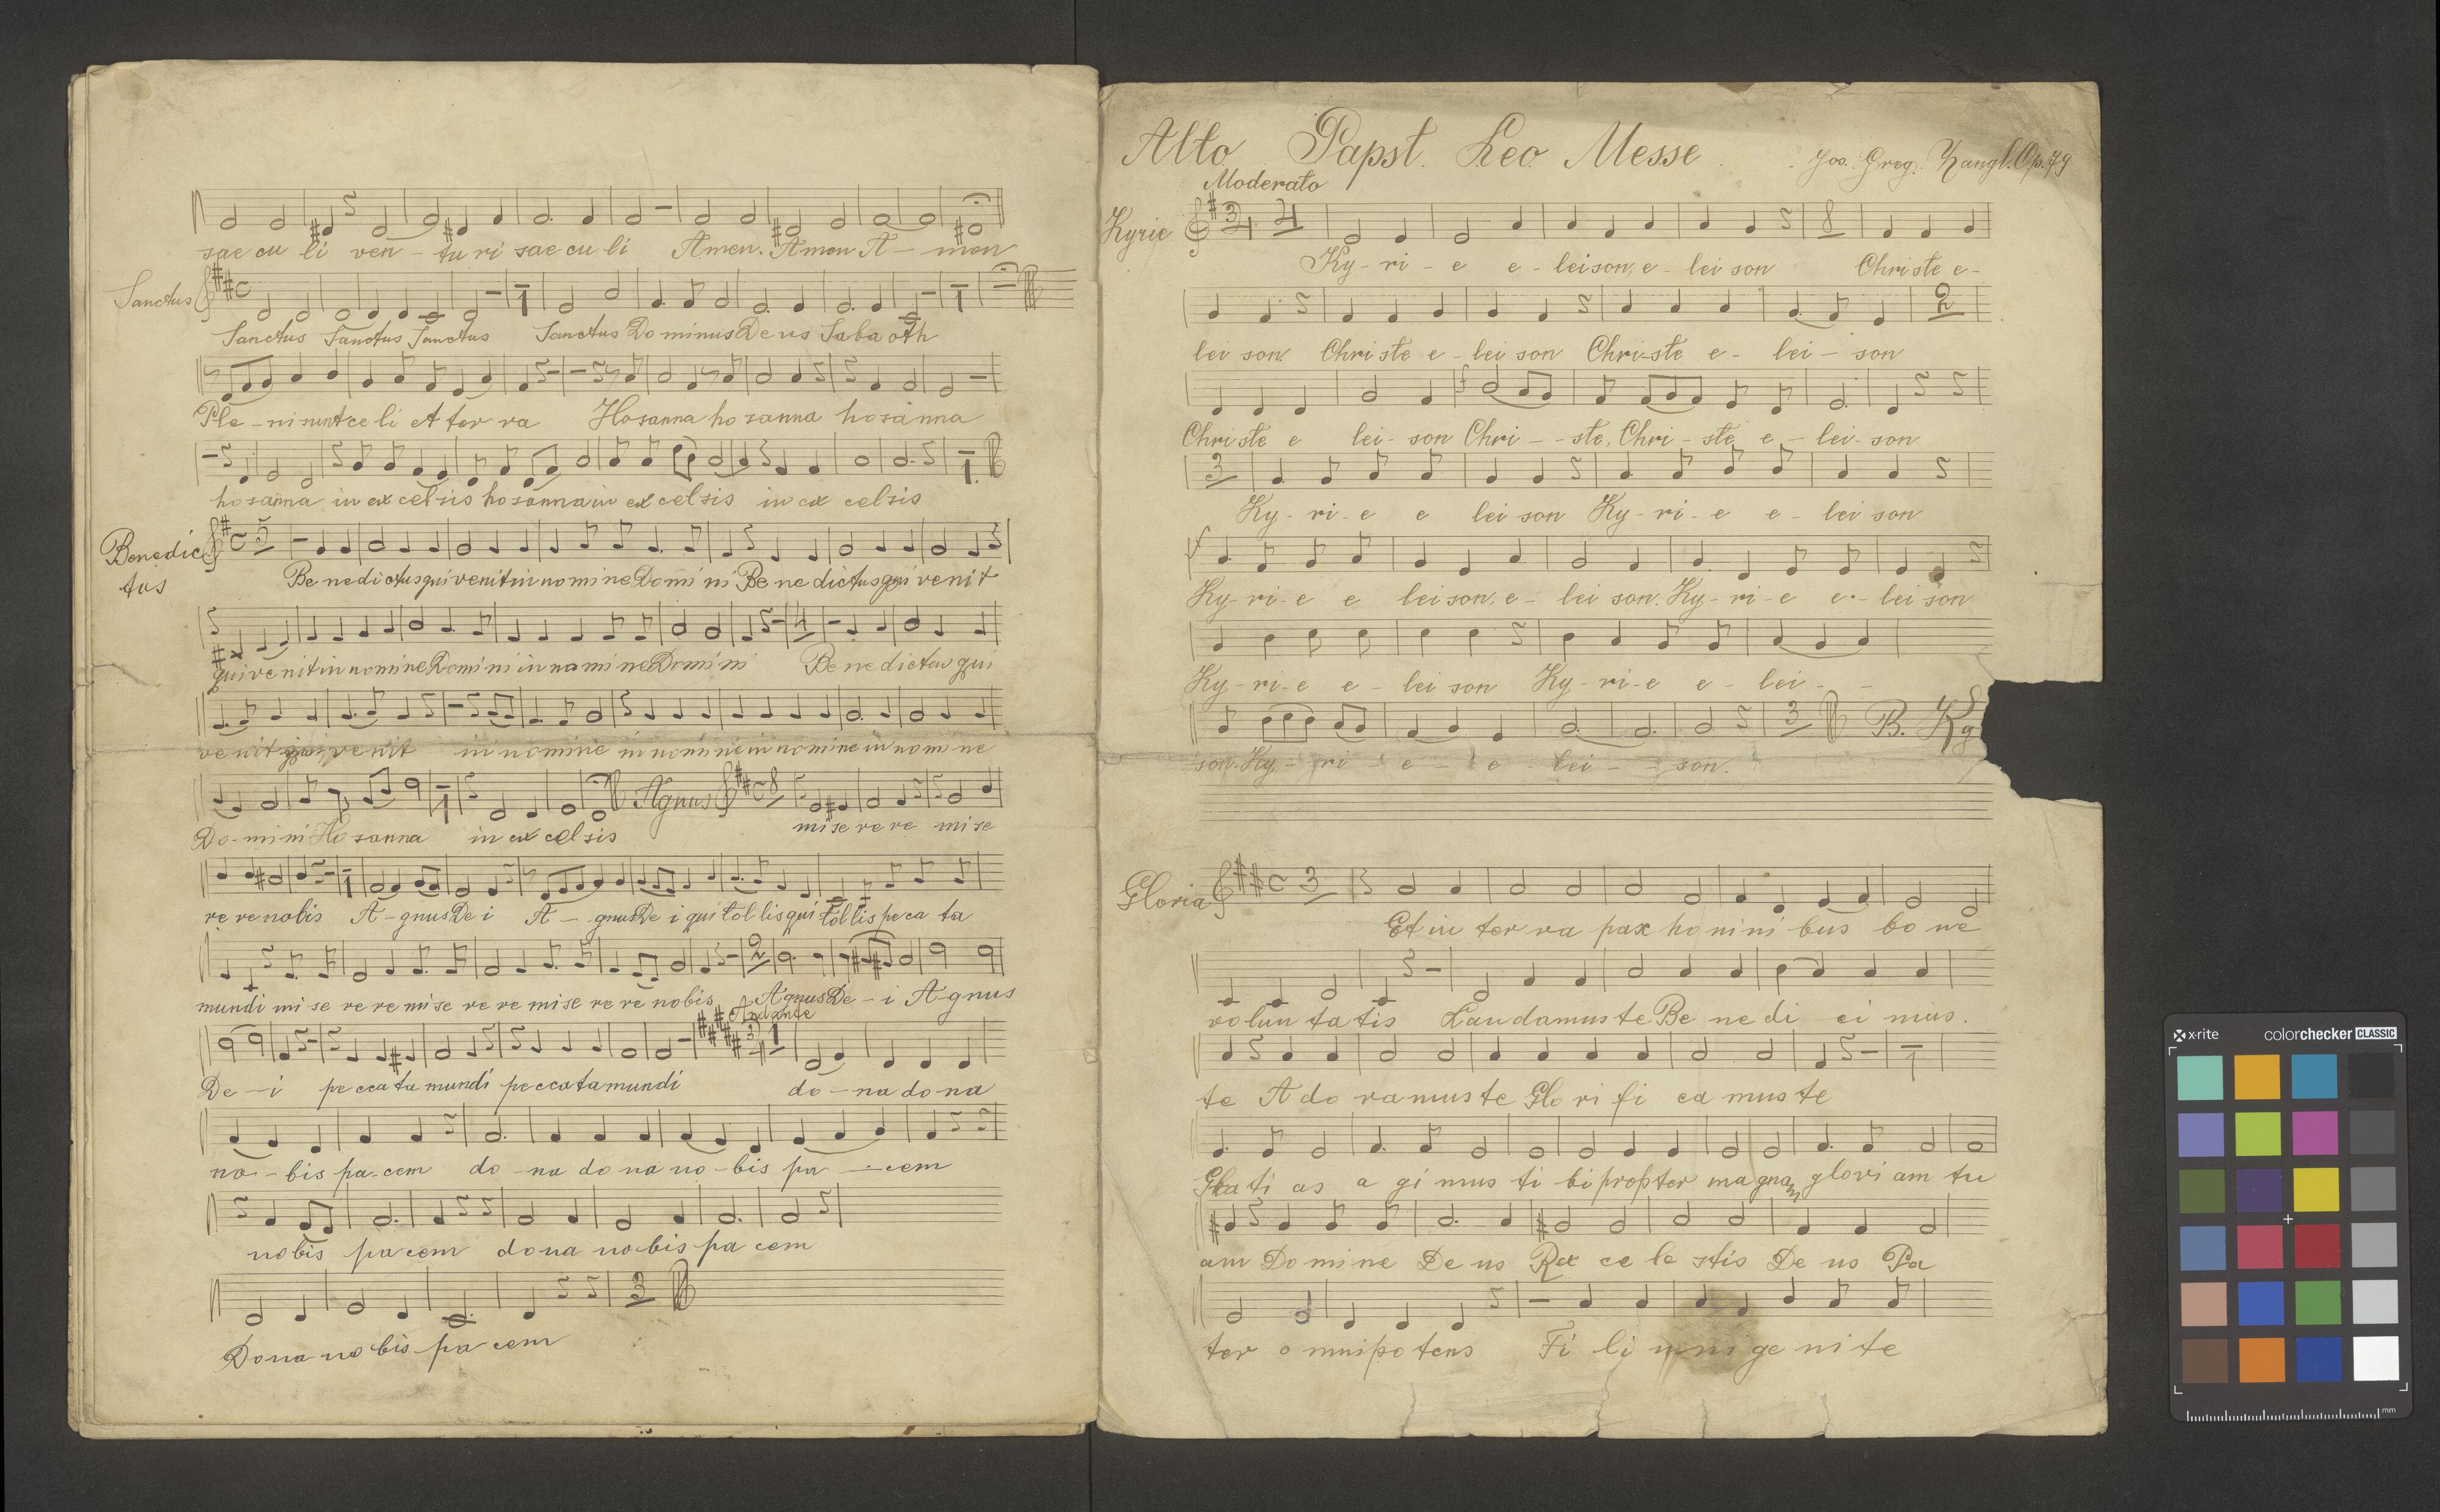 sae cu li ven - tu ri sae cu li Amen. Amen A - men
Sanctus
Sanctus Sanctus Sanctus Sanctus Do minus De us Saba oth
Ple - ni sunt ce li et ter ra Hosanna ho sanna hosanna
hosanna in ex celsis hosanna in ex celsis in ex celsis
Benedic
tus
Be ne dictus qui venit in no mi ne Do mi ni Be ne dictus qui venit
qui ve nit in nomine Domi ni in no mi ne Domini Be ne dictus qui
ve nit qui venit in nomine in nomine in nomine in nomi ne
Agnus
Do - mi ni Ho sanna in ex cel sis mi se re re mi se
re re nobis A - gnus De i A - gnus De i qui tol lis qui tol lis pe ca ta
mundi mi se re re mi se re re mise re re nobis Agnus De - i A - gnus
Andante
De - i pecca ta mundi peccata mundi do - na do - na
no - bis pa - cem do - na do na no - bis pa - cem
nobis pa cem dona nobis pa cem
Dona no bis pa cem
Alto Papst. Leo Messe Jos. Greg. Zangl. Op. 79
Moderato
Kyrie
Ky - ri - e e - leison, e - lei son Christe e -
lei son. Christe e - lei son Chri - ste e - lei - son
Christe e lei - son Chri - - ste, Chri - ste e - lei - son
Ky - ri - e e lei son Ky - ri - e e - lei son
Ky - ri - e e leison, e - lei son. Ky - ri - e e - lei son
Ky - ri - e e - lei son Ky - ri - e e - lei - -
B. Kg
son. Ky - ri - e - e - lei - - son.
Gloria
Et in ter ra pax ho mini bus bo ne
volun ta tis Laudamus te Be ne di ci mus.
te A do ramus te Glo ri fi ca mus te
Gra ti as a gi mus ti bi propter magnam gloriam tu
am Do mi ne De us Rex ce le stis De us Pa
ter o mnipo tens Fi li u ni ge ni te
x-rite colorchecker CLASSIC
mm